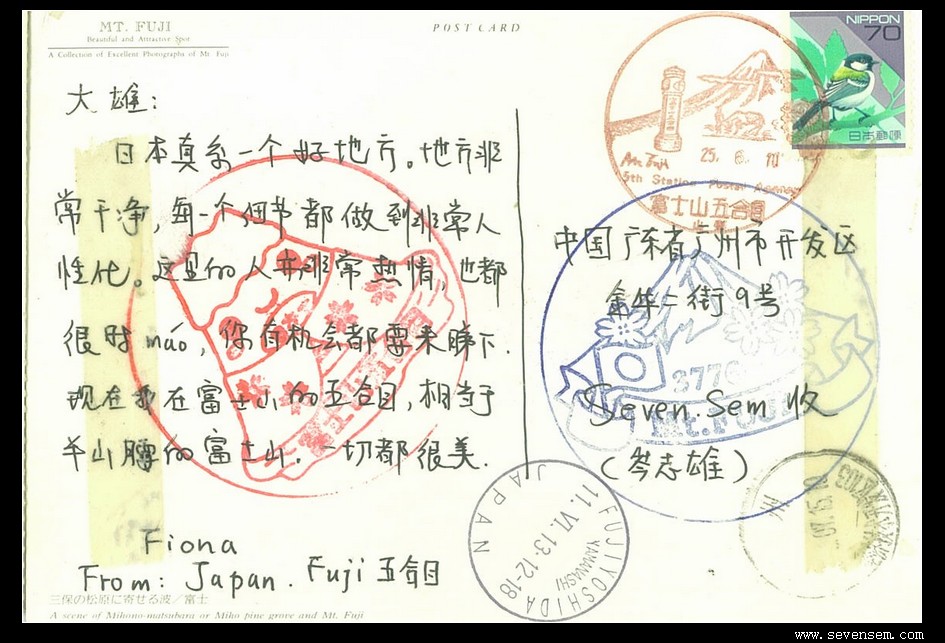 MT. FUJI
Beautiful and Attractive Spot
A Collection of Excellent Photographs of Mt. Fuji
POST CARD
NIPPON
70
日本郵便
大雄：
日本真系一个好地方。地方非
常干净，每一个细节都做到非常人
性化。这里的人亦非常热情，也都
很时máo，你有机会都要来睇下.
现在我在富士山的五合目，相当于
半山腰的富士山。一切都很美.
Fiona
From: Japan. Fuji 五合目
三保の松原に寄せる波／富士
A scene of Mihono-matsubara or Miho pine grove and Mt. Fuji
Mt. Fuji
25. 6. 11
5th Station Postal Agency
富士山五合目
山梨
中国广东省广州市开发区
金华二街9号
Seven.Sem 收
（岑志雄）
3776
Mt.FUJI
富士山五合目
FUJIYOSHIDA
YAMANASHI
11. VI. 13. 12-18
JAPAN
www.sevensem.com